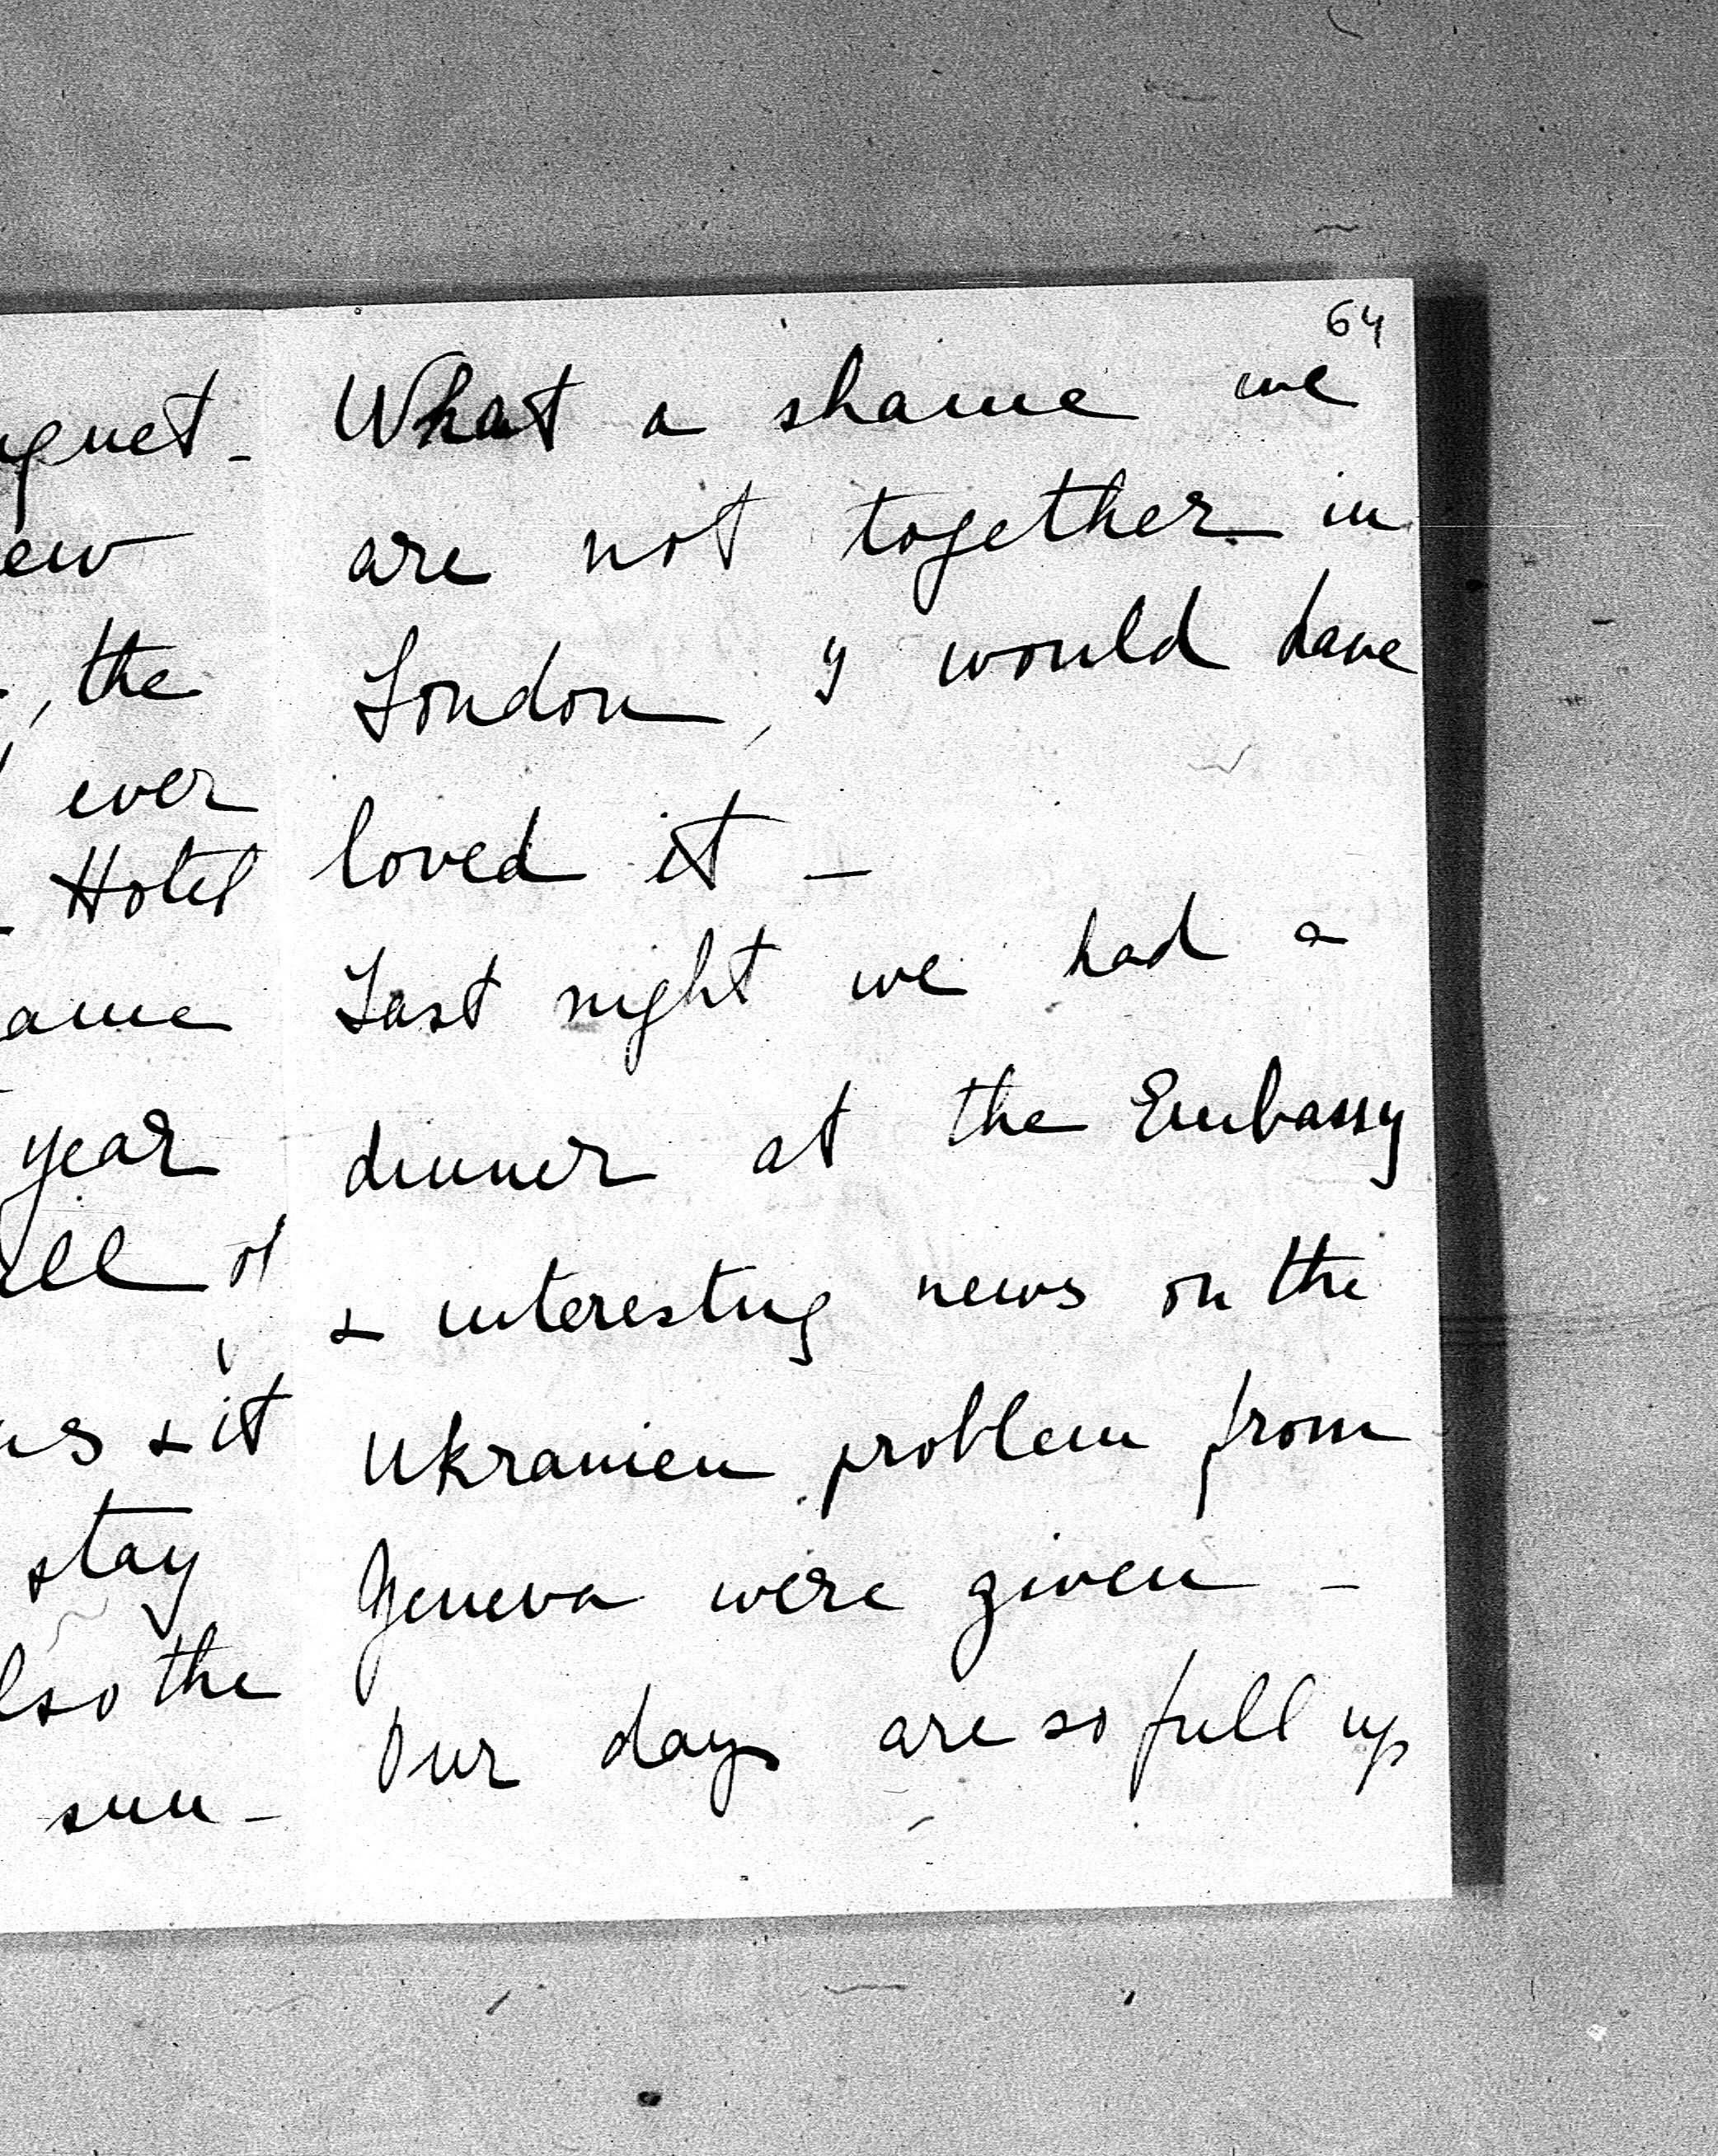 the
ever
Hotel
year
of
& it
stay
the
sun -
64
What a shame we
are not together in
London, I would have
loved it -
Last night we had a
dinner at the Embassy
& interesting news on the
Ukranien problem from
Geneva were given -
Our days are so full up